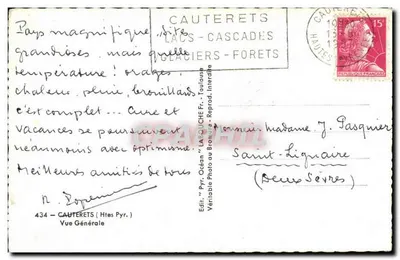 CAUTERETS
LACS - CASCADES
GLACIERS - FORETS
CAUTERETS
HAUTES
15F
Pays magnifique, sites
grandioses, mais quelle
température ! orages
chaleur, pluie, brouillards
c'est complet... Cure et
vacances se poursuivent
néanmoins avec optimisme
Meilleures amitiés de tous
434 - CAUTERETS (Htes Pyr.)
Vue Générale
Edit. "Pyr. Océan" LATOUCHE Fr. - Toulouse
Véritable Photo au Bromure - Reprod. Interdite
Monsieur Madame J. Pasquier
Saint-Liguaire
(Deux Sèvres)